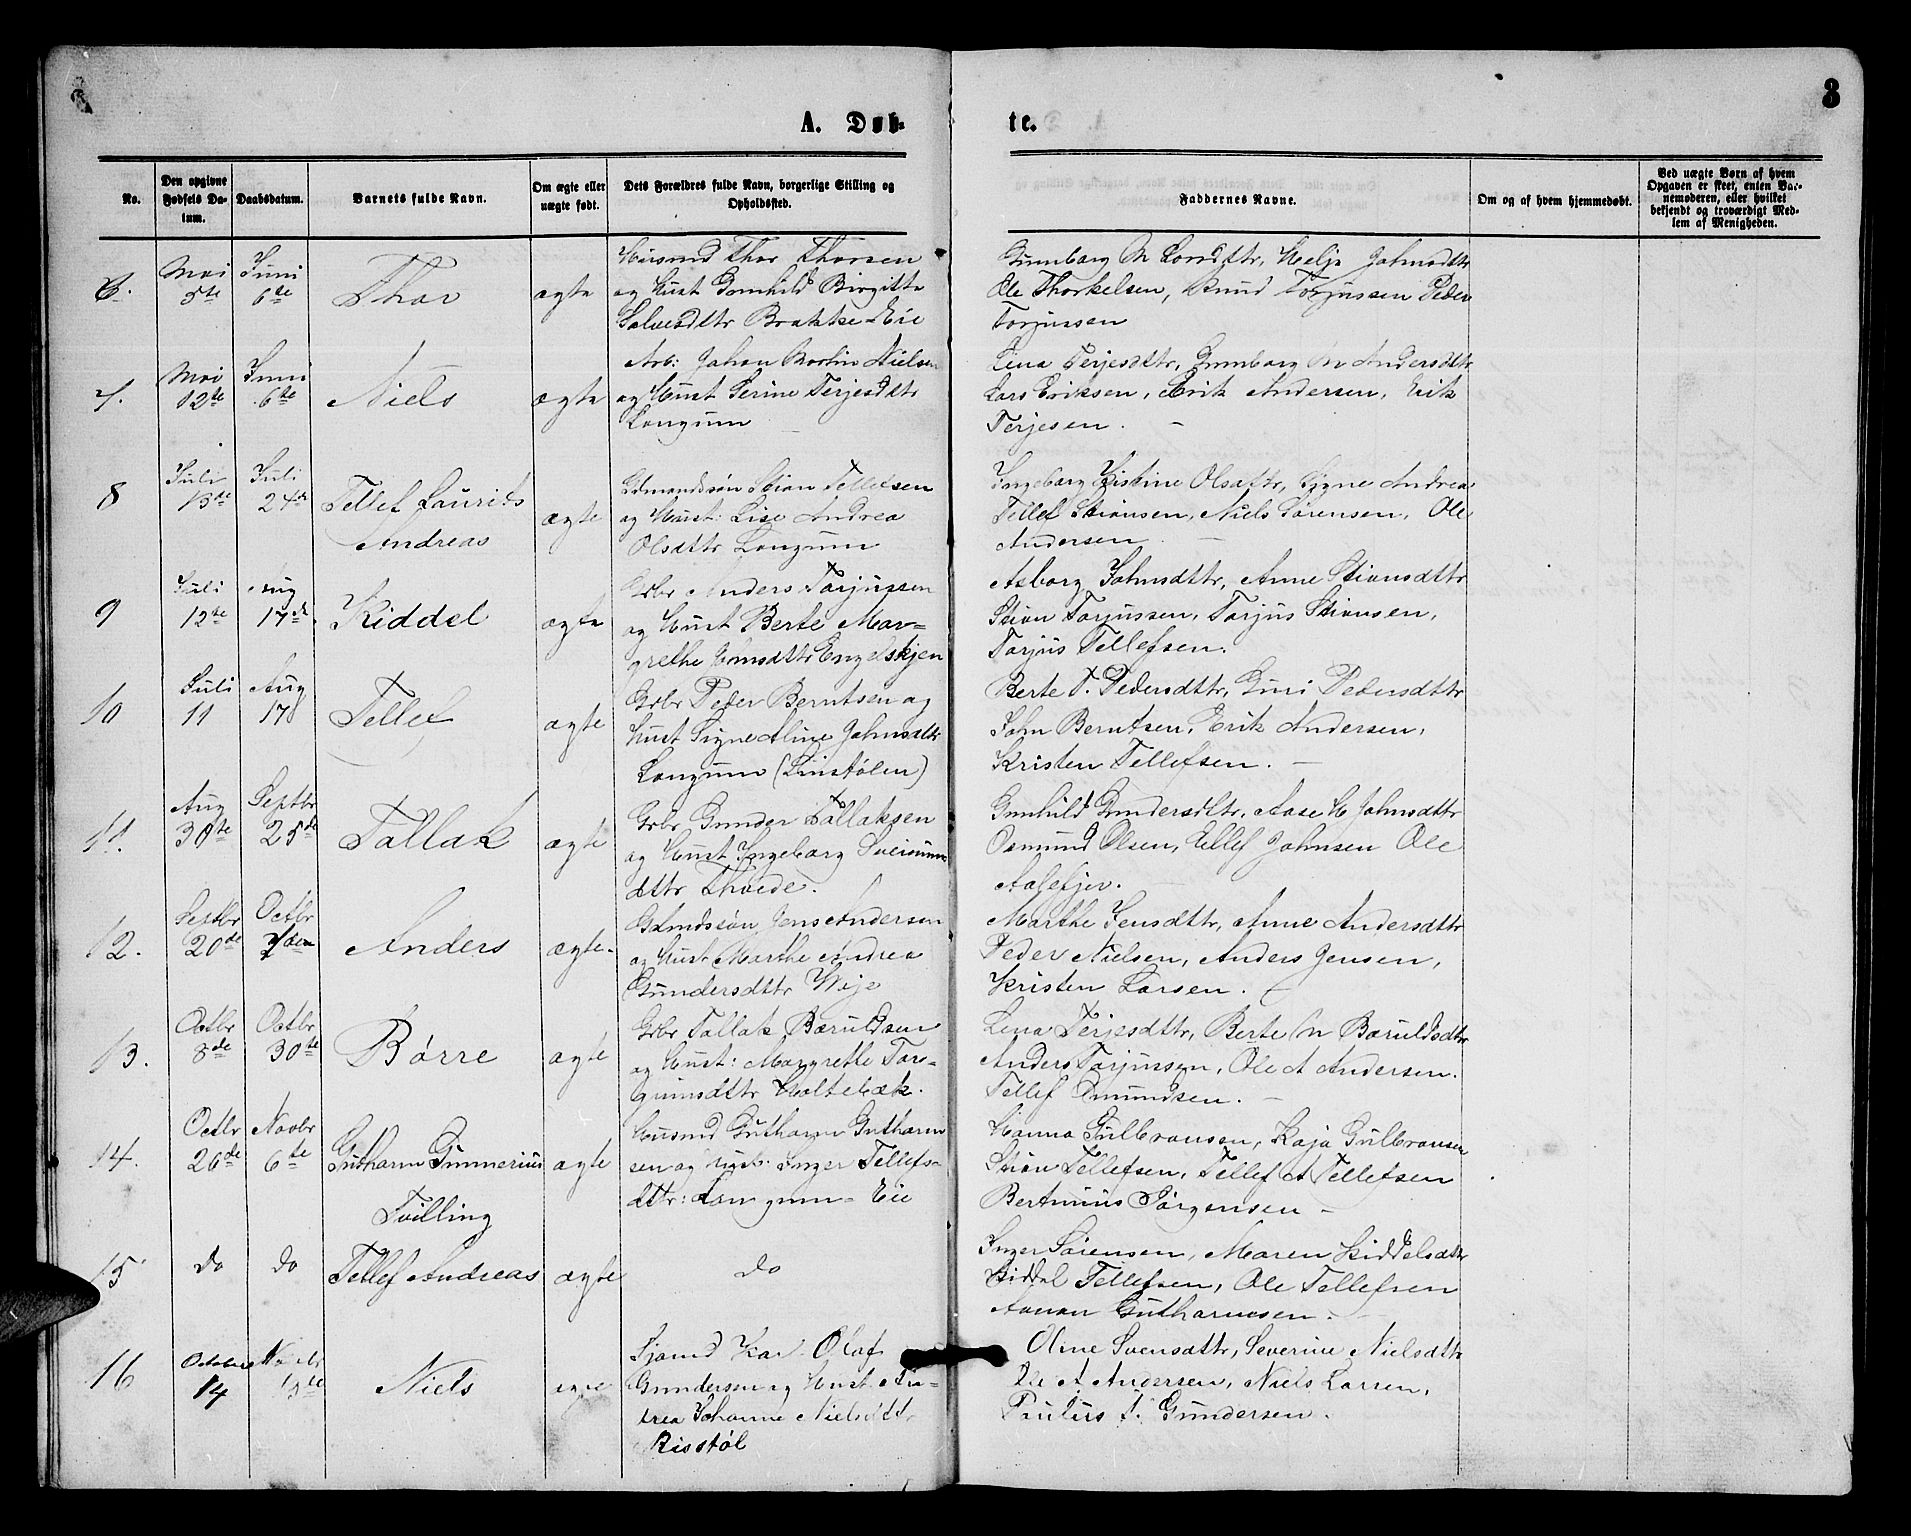 3
A. Døb-
te.
No.
Den opgivne Fødsels Datum.
Daabsdatum.
Barnets fulde Navn.
Om ægte eller uægte født.
Dets Forældres fulde Navn, borgerlige Stilling og Opholdssted.
Faddernes Navne.
Om og af hvem hjemmedøbt.
Ved uægte Børn af hvem Opgaven er skeet, enten Barnemoderen, eller hvilket bekjendt og troværdigt Medlem af Menigheden.
6. Mai 5te Juni 6te Thor ægte
Husmd Thor Thorsen
og Hust Gunhild Birgitte
Salvesdttr Brække-Eie
Gunborg M Larsdttr, Helje Johnsdttr
Ole Thorkelsen, Knud Torjussen Peder
Torjussen
7. Mai 12te Juni 6te Niels ægte
Arb: Johan Martin Nielsen
og Hust Serine Terjesdttr
Longum
Lina Terjesdttr, Gunborg M Andersdttr
Lars Eriksen, Erik Andersen, Erik
Terjesen. -
8 Juli 13de Juli 24de Tellef Laurids
Andreas ægte
Gdmandssøn Stian Tellefsen
og Hust: Lise Andrea
Olsdttr Longum
Ingeborg Kistine Olsdttr, Signe Andrea
Tellef Stiansen, Niels Sørensen, Ole
Andersen. -
9 Juli 12te Aug 17de Kiddel ægte
Grbr Anders Torjussen
og Hust Berte Mar=
grethe Engelskjen
Asborg Johnsdttr, Anne Stiansdttr
Stian Torjussen, Torjus Stiansen,
Torjus Tellefsen.
10 Juli 11 Aug 17 Tellef ægte
Grbr Peder Berntsen og
Hust Signe Aline Johnsdttr
Longum (Linstølen)
Berte T. Pedersdttr, Guri Pedersdttr
John Berntsen, Erik Andersen,
Kristen Tellefsen. -
11. Aug 30te Septbr 25de Tallak ægte
Grbr Gunder Tallaksen
og Hust Ingeborg Sveinun
dttr Thvede.
Gunhild Gundersdttr, Aase M Johnsdttr
Osmund Olsen, Ellef Johnsen Ole
Aalefjer.
12. Septbr 20de Octbr 2den Anders ægte.
Gdmdssøn Jens Andersen
og Hust Marthe Andrea
Gundersdttr Wije
Marthe Jensdttr, Anne Andersdttr
Peder Nielsen, Anders Jensen,
Kristen Larsen.
13. Octbr 8de Octbr 30te Børre ægte
Grbr Tallak Bæruldsen
og Hust: Margrethe Tar=
gumsdttr Holtebæk.
Lena Terjesdttr, Berte M Bæruldsdttr
Anders Torjussen, Ole A Andersen.
Tellef Omundsen. -
14. Octbr 26de Novbr 6te Gutharm Gunnerius
Tvilling ægte
Husmd Gutharm Gutharm
sen og Hust: Inger Tellefs=
dttr: Longum=Eie
Hanna Gulbransen, Kaja Gulbransen
Stian Tellefsen, Tellef A Tellefsen
Berthinius Jørgensen -
15 do do Tellef Andreas ægte do
Inger Sørensen, Maren Kiddelsdttr
Kiddel Tellefsen, Ole Tellefsen
Aanon Gutharmsen. -
16 October 14 Novbr Niels ægte
Sjømd Kar Olaf
Gundersen og Hust An=
drea Johanne Nielsdttr
Risstøl
Oline Svensdttr, Severine Nielsdttr
Ole A Andersen, Niels Larsen,
Paulus T. Gundersen.